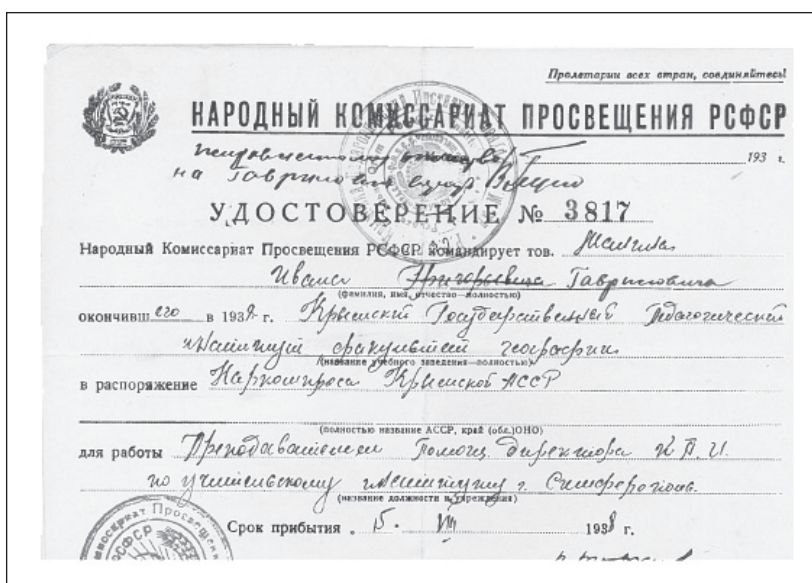 Пролетарии всех стран, соединяйтесь!
НАРОДНЫЙ КОМИССАРИАТ ПРОСВЕЩЕНИЯ РСФСР
193 г.
на Гавриловича
УДОСТОВЕРЕНИЕ № 3817
Народный Комиссариат Просвещения РСФСР командирует тов.
Ивана Григорьевича Гавриловича
(фамилия, имя, отчество—полностью)
окончивш его в 1938 г. Крымский Государственный Педагогический
институт факультет географии
(название учебного заведения—полностью)
в распоряжение Наркомпроса Крымской АССР
(полностью название АССР, край (обл.)ОНО)
для работы Преподавателем Помощ. директора К.П.И.
по учительскому институту г. Симферополь.
(название должности и учреждения)
Срок прибытия . 15. VIII 1938 г.